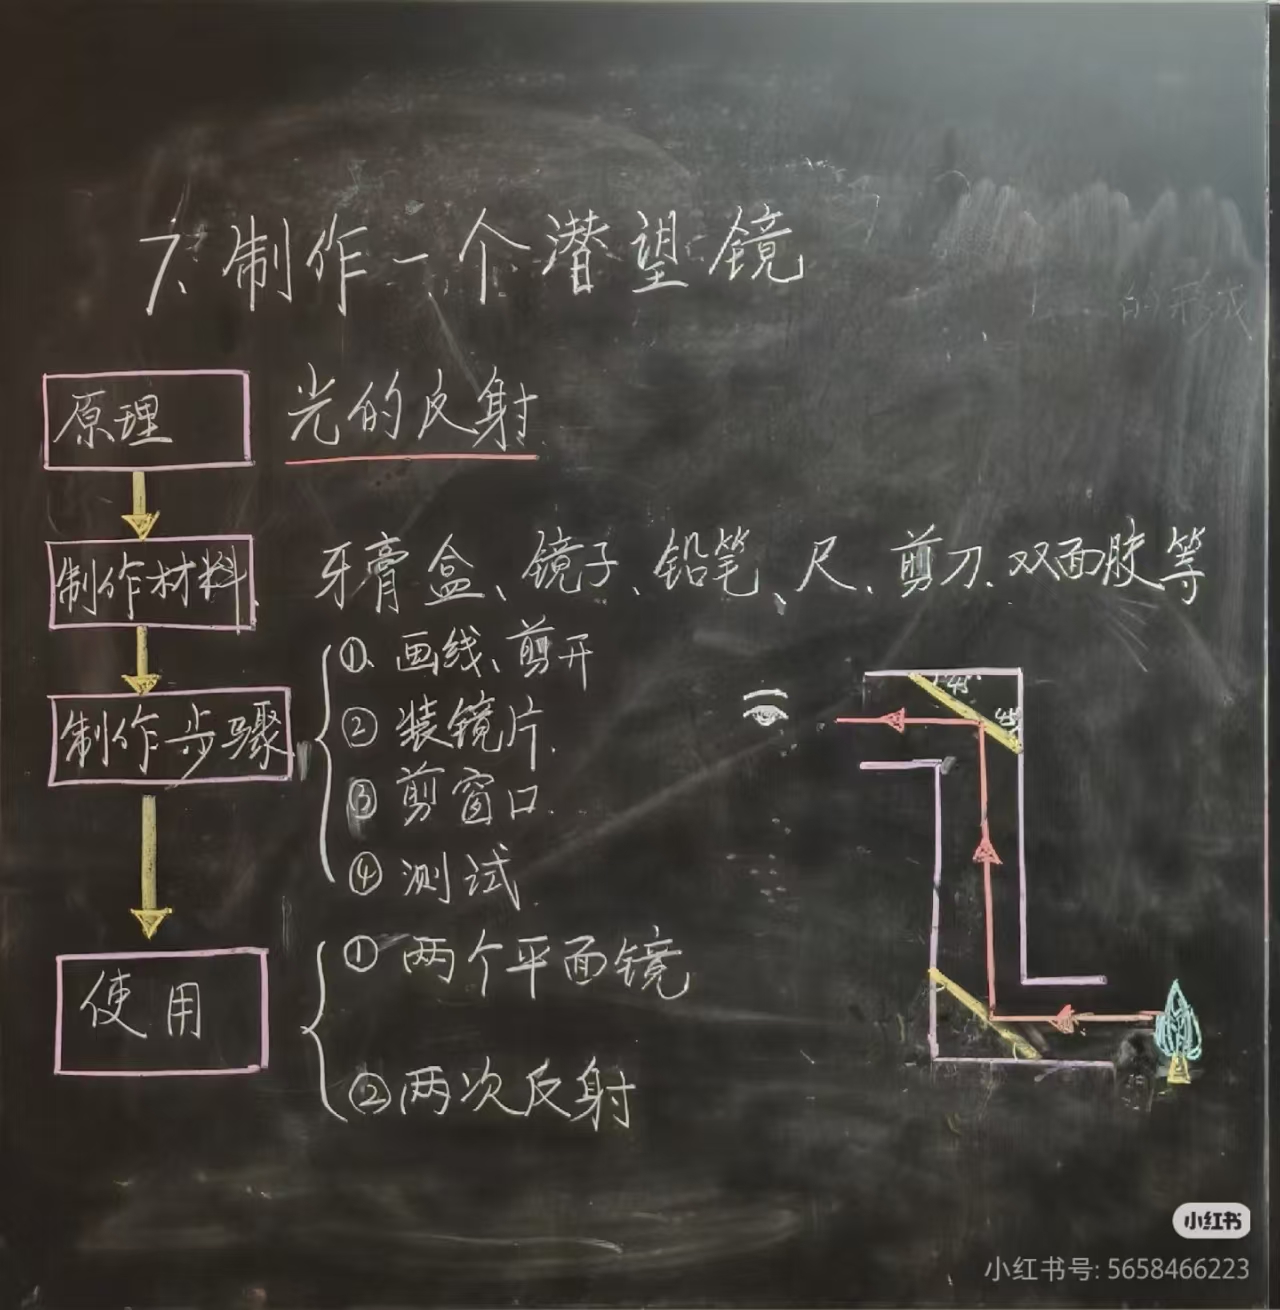 7、制作一个潜望镜
的形成
原理 光的反射
制作材料 牙膏盒、镜子、铅笔、尺、剪刀、双面胶等
制作步骤
①、画线、剪开
②装镜片
③剪窗口
④测试
45°
45°
使用
①两个平面镜
②两次反射
小红书
小红书号: 5658466223